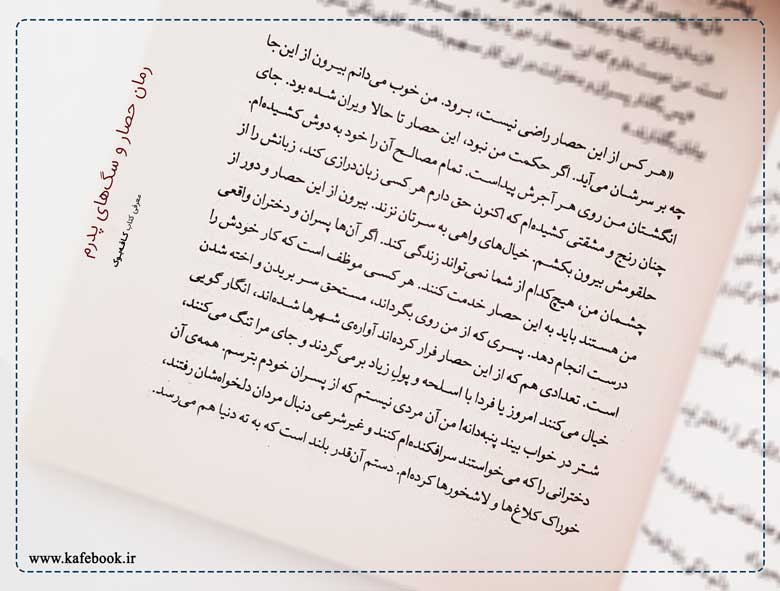 «هر کس از این حصار راضی نیست، برود. من خوب می‌دانم بیرون از این‌جا
چه بر سرشان می‌آید. اگر حکمت من نبود، این حصار تا حالا ویران شده بود. جای
انگشتان من روی هر آجرش پیداست. تمام مصالح آن را خود به دوش کشیده‌ام.
چنان رنج و مشقتی کشیده‌ام که اکنون حق دارم هر کسی زبان‌درازی کند، زبانش را از
حلقومش بیرون بکشم. خیال‌های واهی به سرتان نزند. بیرون از این حصار و دور از
چشمان من، هیچ‌کدام از شما نمی‌تواند زندگی کند. اگر آن‌ها پسران و دختران واقعی
من هستند باید به این حصار خدمت کنند. هر کسی موظف است که کار خودش را
درست انجام دهد. پسری که از من روی بگرداند، مستحق سر بریدن و اخته شدن
است. تعدادی هم که از این حصار فرار کرده‌اند آواره‌ی شهرها شده‌اند، انگار گویی
خیال می‌کنند امروز یا فردا با اسلحه و پول زیاد برمی‌گردند و جای مرا تنگ می‌کنند،
شتر در خواب بیند پنبه‌دانه! من آن مردی نیستم که از پسران خودم بترسم. همه‌ی آن
دخترانی را که می‌خواستند سرافکنده‌ام کنند و غیرشرعی دنبال مردان دلخواه‌شان رفتند،
خوراک کلاغ‌ها و لاشخورها کرده‌ام. دستم آن‌قدر بلند است که به ته دنیا هم می‌رسد.
رمان حصار و سگ‌های پدرم
معرفی کتاب کافه‌بوک
www.kafebook.ir